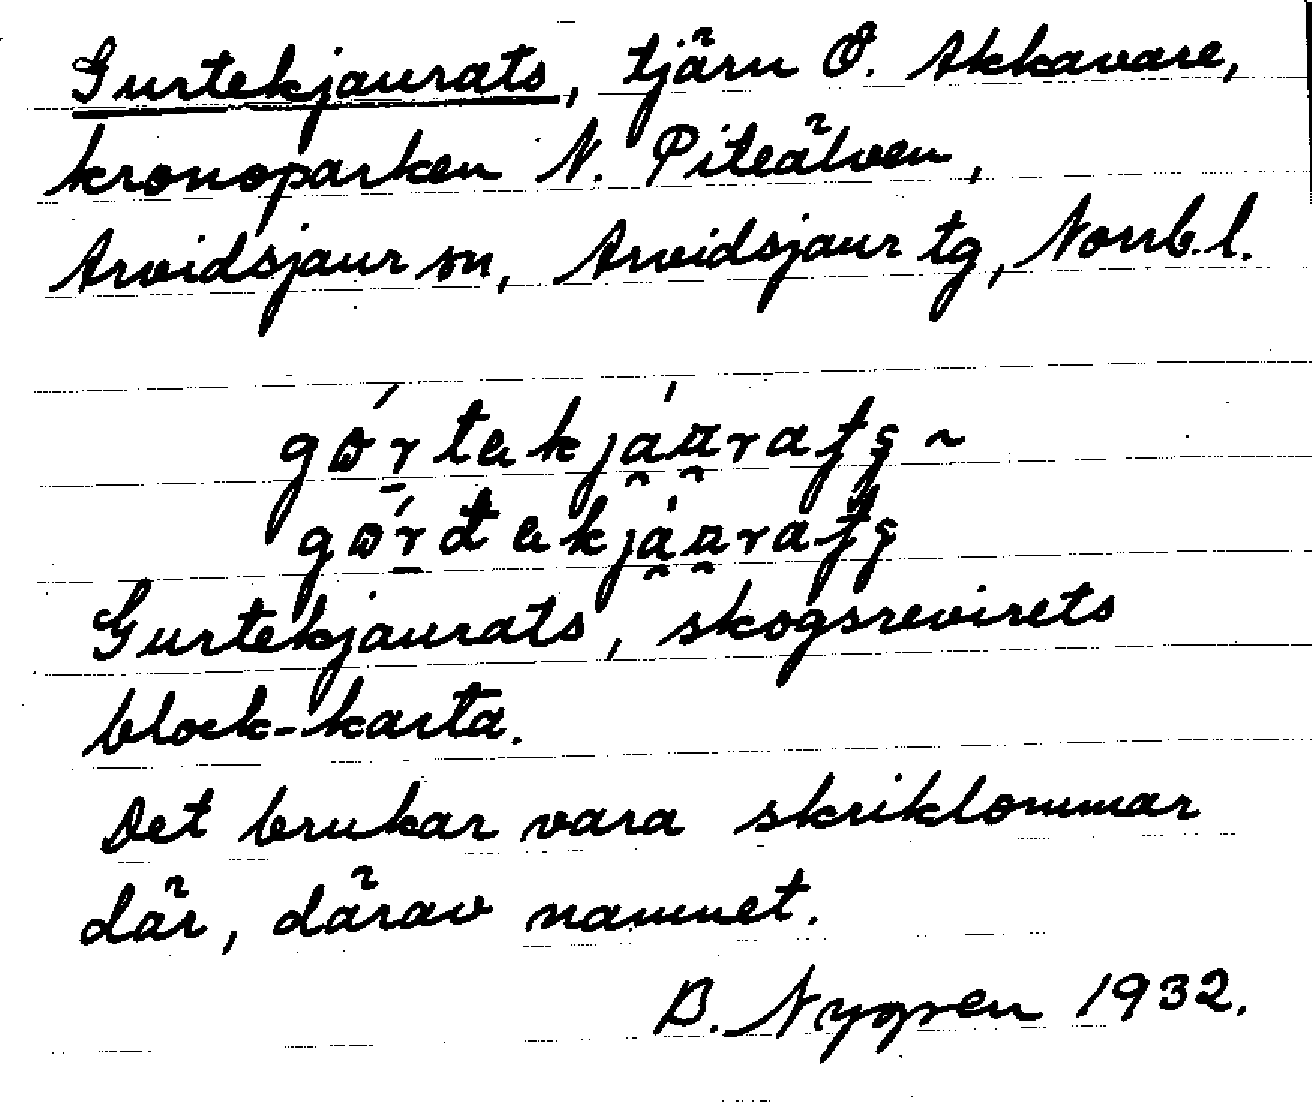 Gurtekjaurats, tjärn Ö. Akkavare,
kronoparken N. Piteälven,
Arvidsjaur sn, Arvidsjaur tg, Norrb.l.
Gurtekjaurats, skogsrevirets
block-karta.
Det brukar vara skriklommar
där, därav namnet.
B. Nygren 1932.